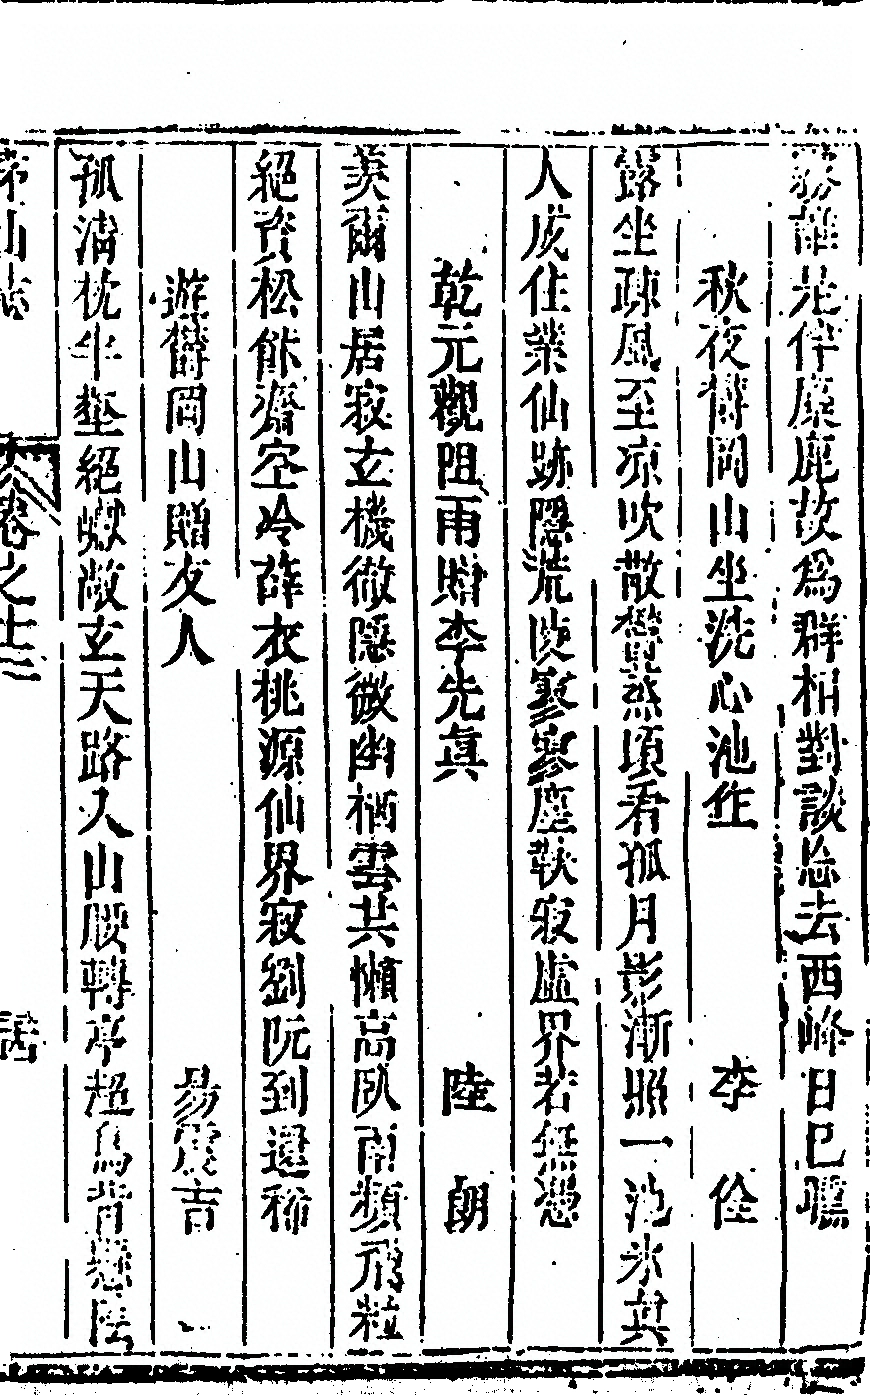 務誰是伴麋鹿故爲群相對談忘去西峰日已曛
秋夜欝岡山坐洗心池作 李佺
露坐疎風至凉吹散欝蒸頃看孤月影漸照一池氷真
人成住業仙跡隱荒陂寥寥塵鞅寂虛界若無憑
乾元觀阻雨贈李先眞 陸朗
羨爾山居寂玄機徹隱微幽栖雲共懶高臥雨頻飛粒
絕資松餙齋空冷薜衣桃源仙界寂劉阮到還稀
遊欝岡山贈友人 易震吉
孤淸枕半壑絕巘敞玄天路入山腰轉亭超鳥背懸陰
茅山志 卷之十三